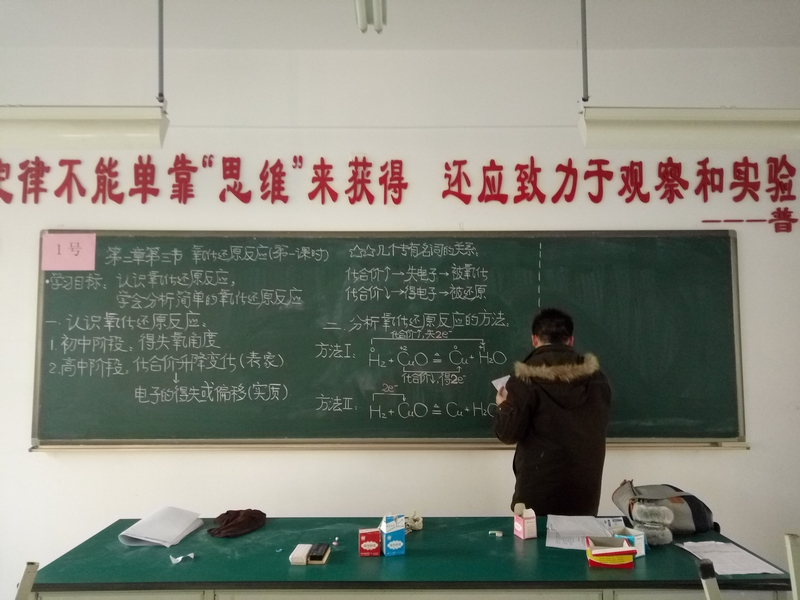 律不能单靠“思维”来获得 还应致力于观察和实验
———普
1号
第二章第三节 氧化还原反应(第一课时)
学习目标：认识氧化还原反应，
学会分析简单的氧化还原反应
一.认识氧化还原反应。
1.初中阶段：得失氧角度
2.高中阶段：化合价升降变化(表象)
↓
电子的得失或偏移(实质)
☆☆几个专有名词的关系：
化合价↑→失电子→被氧化
化合价↓→得电子→被还原
二.分析氧化还原反应的方法：
化合价↑，失2e⁻
方法Ⅰ：
0 +2 0 +1
H₂+CuO ≜ Cu+H₂O
化合价↓，得2e⁻
2e⁻
方法Ⅱ：H₂+CuO ≜ Cu+H₂O